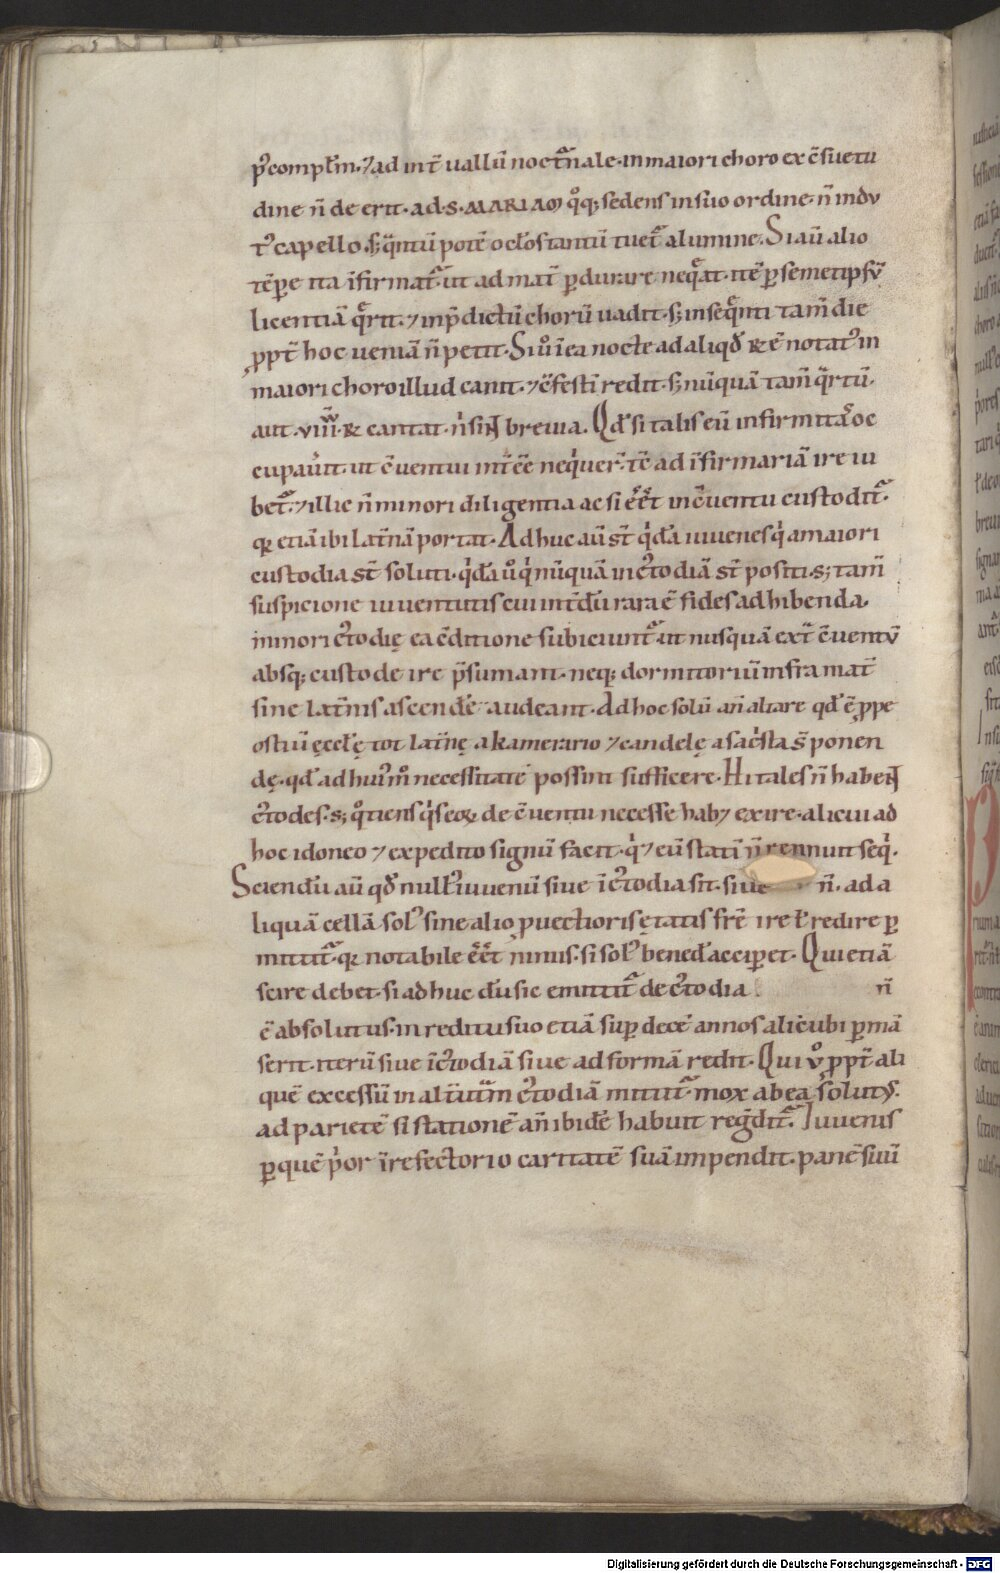 p᷒ compl̄m. ⁊ ad int̄uallū noct̄nale. in maiori choro ex c̄suetu
dine n̄ de erit. ad. s. MARIAM q̊q; sedens in suo ordine. n̄ indu
t᷒ capello. s; q̄ntū potē oc̄los tantū tuet̄ a lumine. Si aū alio
tēpe ita īfirmat̄ ut ad mat̄ pdurare neq̄at. itē p semetipsū
licentiā q̄rit. ⁊ in p̄dictū chorū uadit. s; inseq̄nti tam̄ die
ppt̄ hoc ueniā n̄ petit. Si ů in ea nocte ad aliqd̄ & ē notat᷒ in
maiori choro illud canit. ⁊ c̄festī redit. s; nūquā tam̄ q̄rtū.
aut. viii. & cantat. n̓ sint breuia. Qd̄ si talis eū infirmitas oc
cupau̓it. ut c̄uentui int̄ēē neq̓uer̄. tc̄ ad īfirmariā ire iu
bet̄. ⁊ illic n̄ minori diligentia ac si ēēt in c̄uentu custodit̄.
q; etiā ibi lat̄nā portat. Adhuc aū st̄ q̓dā iuuenes q̓ a maiori
custodia st̄ soluti. q̓dā ů q̓ nūquā in c᷒todiā st̄ positi. s; tam̄
suspicione iuuentutis cui int̄dū rara ē fides adhibenda.
minori c᷒todię ea c̄ditione subiciunt̄. ut nusquā ext̄ c̄uentū
absq; custode ire p̄sumant. neq; dormitoriū infra mat̄
sine lat̄nis ascende audeant. Ad hoc solū an̄ altare qd̄ ē ppe
ostiū ęccl̄ę tot lat̄nę a kamerario ⁊ candelę a sac̓sta s̄ ponen
dę. qd̄ ad hui᷒m̊ necessitatē possint sufficere. Hi tales n̄ habent
c᷒todes. s; q̊tiens q̓s eoꝝ de c̄uentu necesse hab; exire. alicui ad
hoc idoneo ⁊ expedito signū facit. q̓ ⁊ eū statī n̄ rennuit seq̓.
Sciendū aū qd̄ null᷒ iuuenū siue ī c᷒todia sit. siue n̄. ad a
liquā cellā sol᷒ sine alio puectioris ętatis fr̄e ire ł redire p
mittit̄. q; notabile ēēt nimis. si sol᷒ bened̄ accipet. Qui etiā
scire debet. si adhuc dū sic emittit̄ de c᷒todia n̄
ē absolutus. in reditu suo etiā sup decē annos alicubi pmā
serit. iterū siue ī c᷒todiā siue ad formā redit. Qui ů ppt̄ ali
quē excessū in alt̄utrm̄ c᷒todiā mittit̄. mox ab ea solut᷒.
ad parietē si stationē an̄ ibidē habuit reg̊dit̄. Iuuenis
p quē p̓or ī refectorio caritatē suā impendit. panē siui
Digitalisierung gefördert durch die Deutsche Forschungsgemeinschaft - DFG